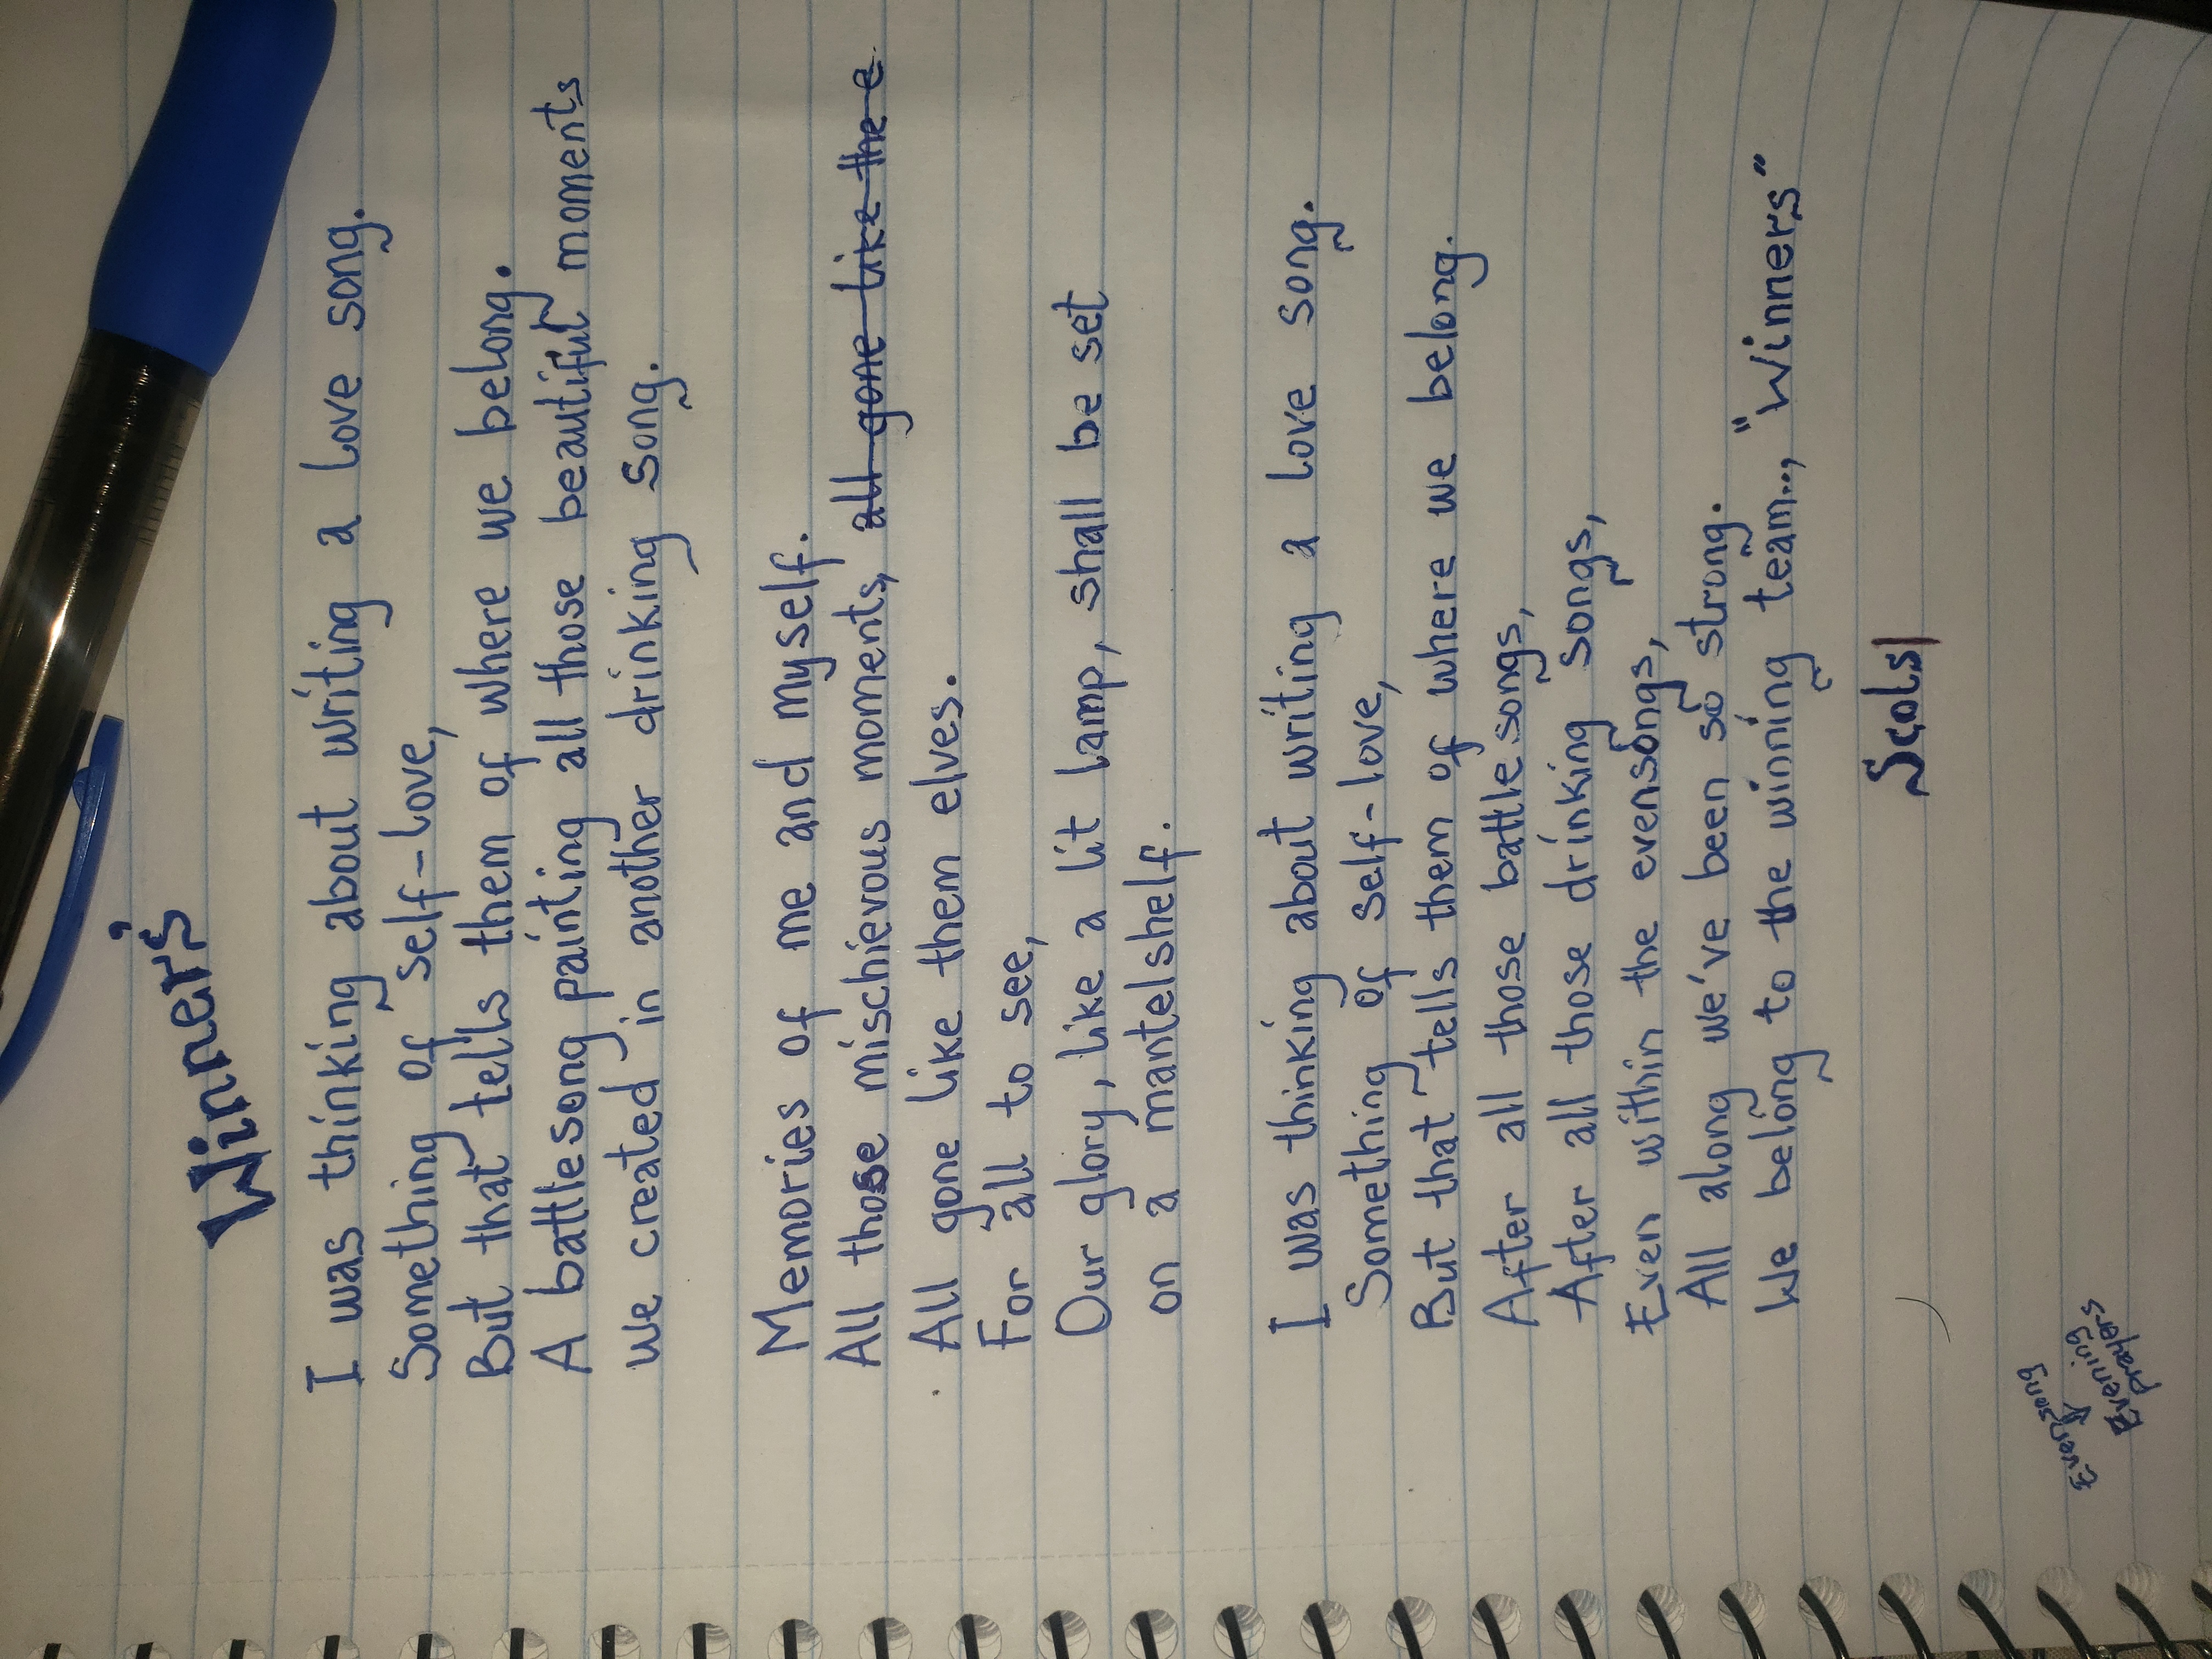 Winners
I was thinking about writing a love song.
Something of self-love,
But that tells them of where we belong.
A battlesong painting all those beautiful moments
we created in another drinking song.
Memories of me and myself.
All those mischievous moments, all gone like the e
All gone like them elves.
For all to see,
Our glory, like a lit lamp, shall be set
on a mantelshelf.
I was thinking about writing a love song.
Something of self-love,
But that tells them of where we belong.
After all those battlesongs,
After all those drinking songs,
Even within the evensongs,
All along we've been so strong.
We belong to the winning team..., "Winners"
Evensong
Evening
prayers